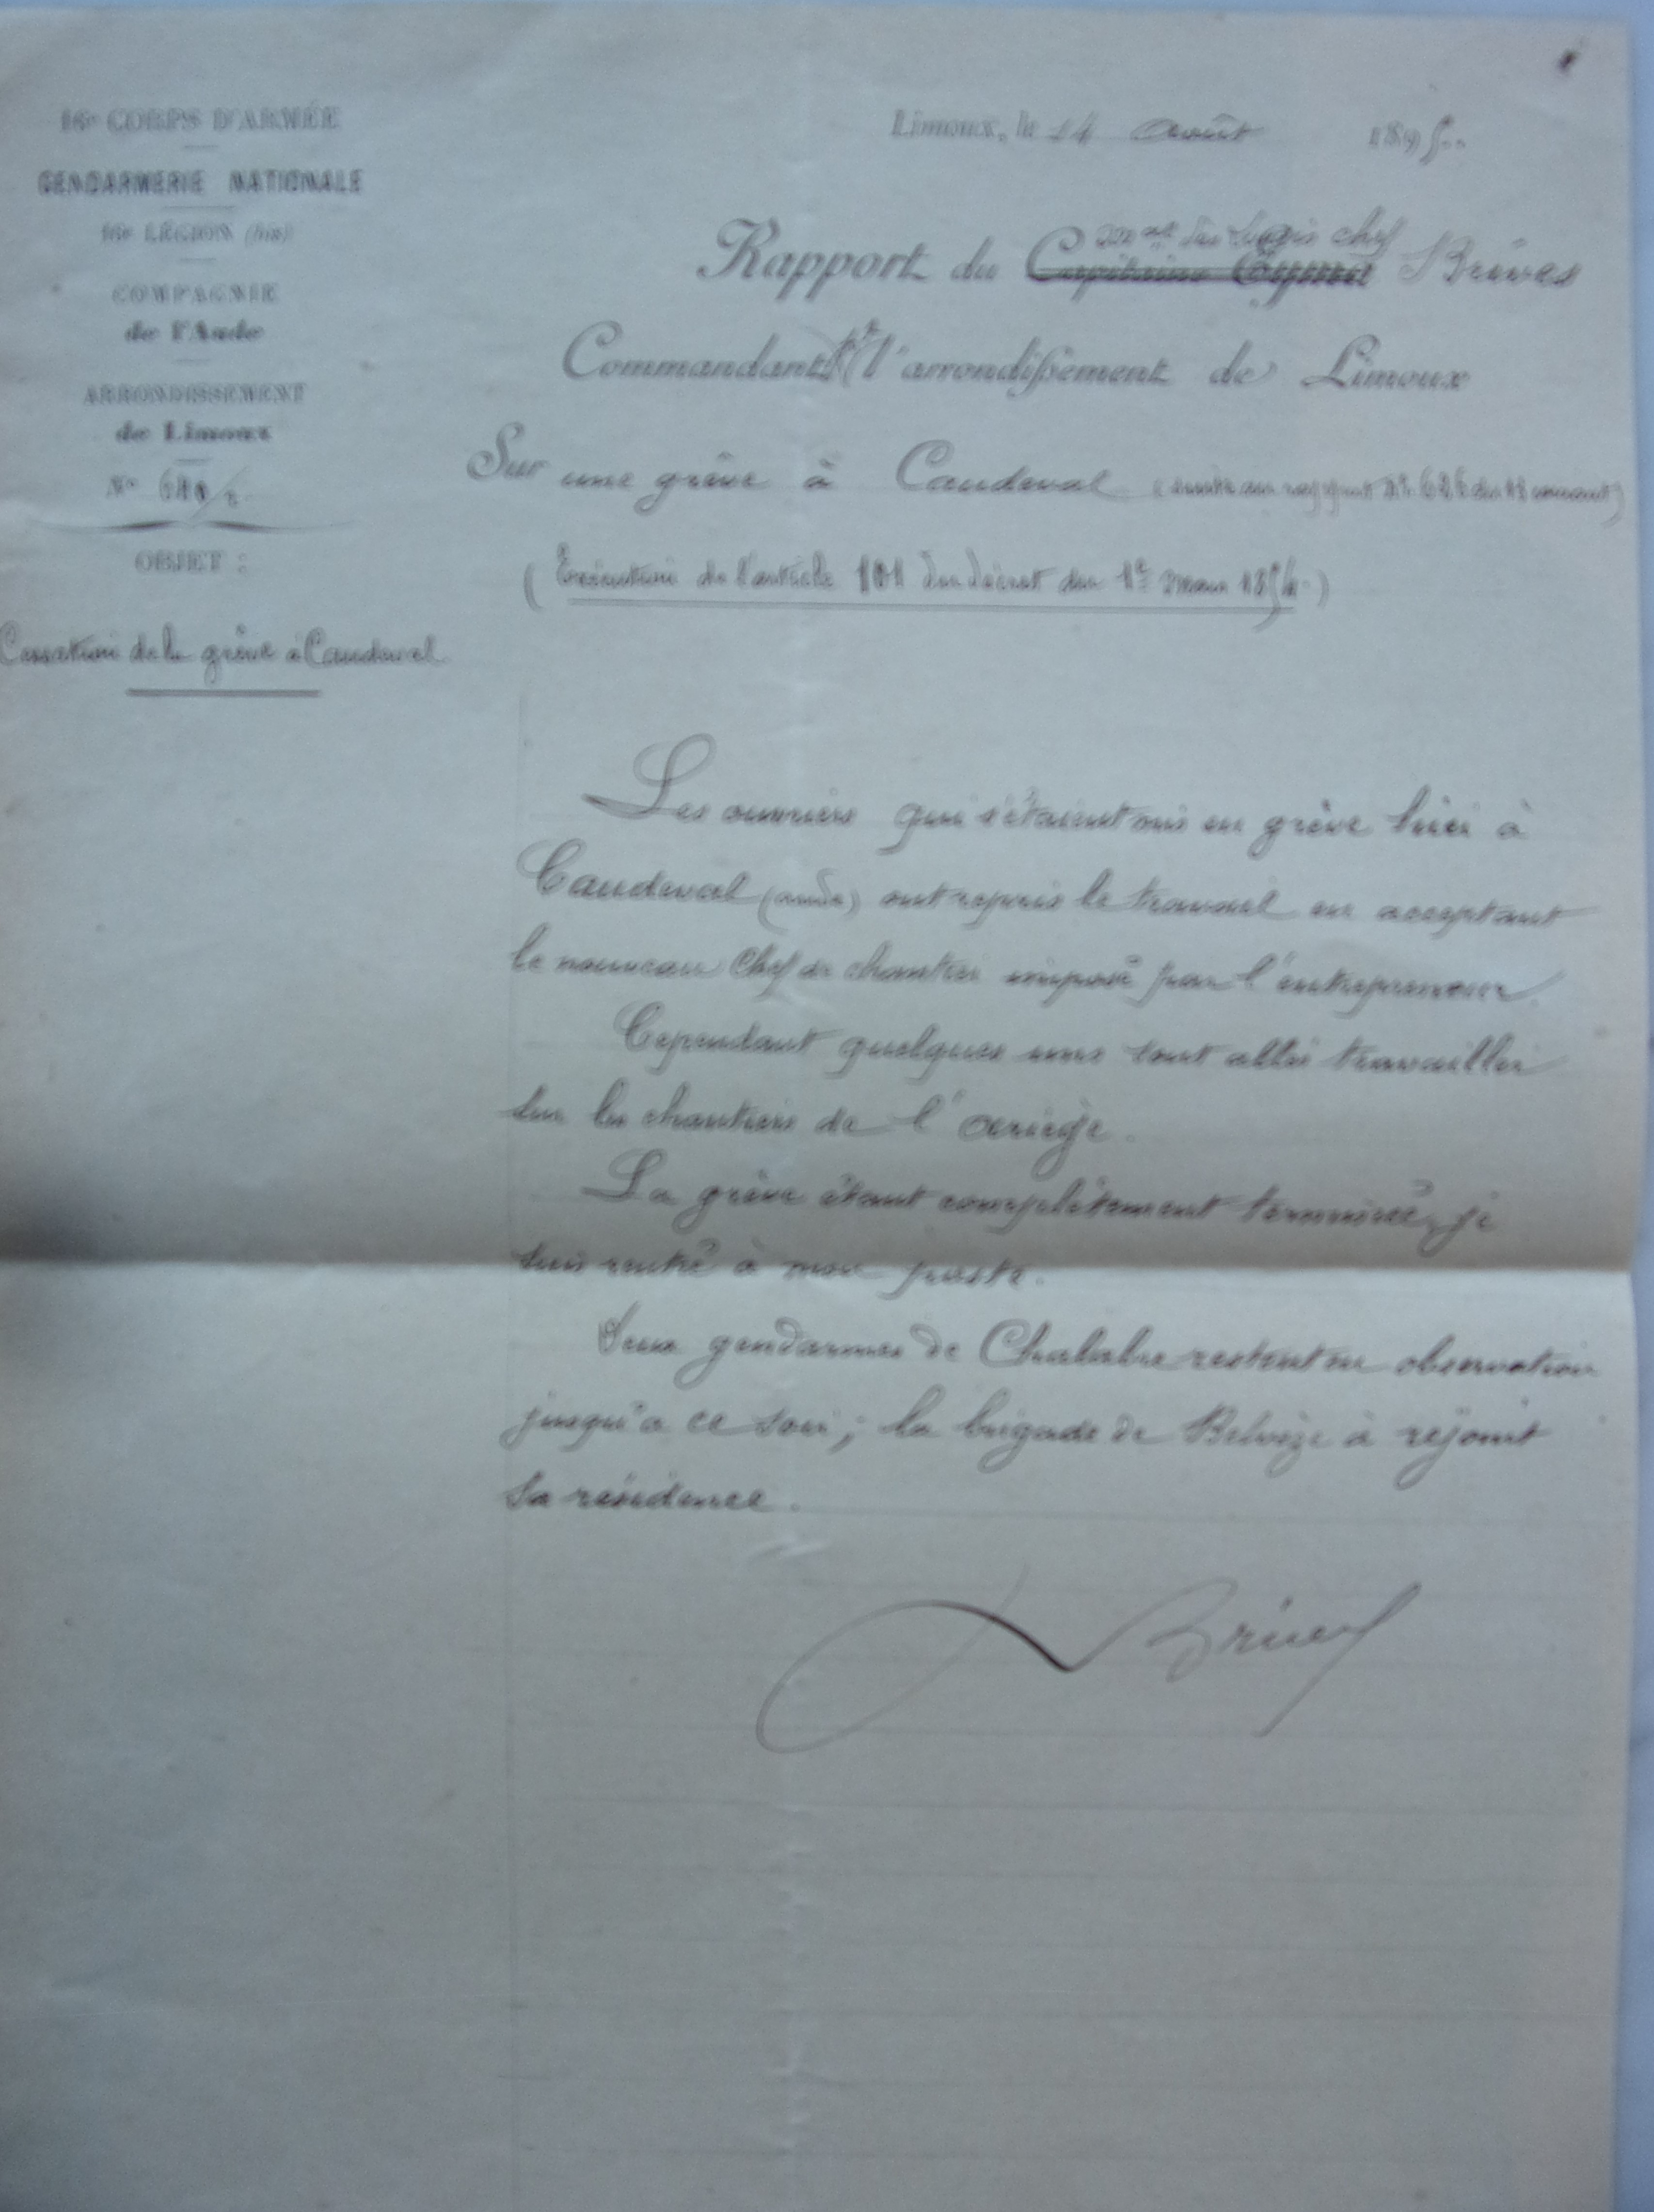 16e CORPS D'ARMÉE
GENDARMERIE NATIONALE
16e LÉGION (bis)
COMPAGNIE
de l'Aude
ARRONDISSEMENT
de Limoux
No
OBJET :
Cessation de la grève à Caudeval
Limoux, le 14 Août 1895
mal des logis chef
Rapport du Capitaine Brives
Commandant l'arrondissement de Limoux
Sur une grève à Caudeval (suite au rapport No du courant)
(Exécution de l'article 101 du décret du 1er mars 1854.)
Les ouvriers qui s'étaient mis en grève hier à
Caudeval (aude) ont repris le travail en acceptant
le nouveau Chef de chantier imposé par l'entrepreneur.
Cependant quelques uns sont allés travailler
sur les chantiers de l'ariège.
La grève étant complètement terminée, je
suis rentré à mon poste.
Deux gendarmes de Chalabre restent en observation
jusqu'a ce soir ; la brigade de Belvèze à rejoint
sa résidence.
Brives